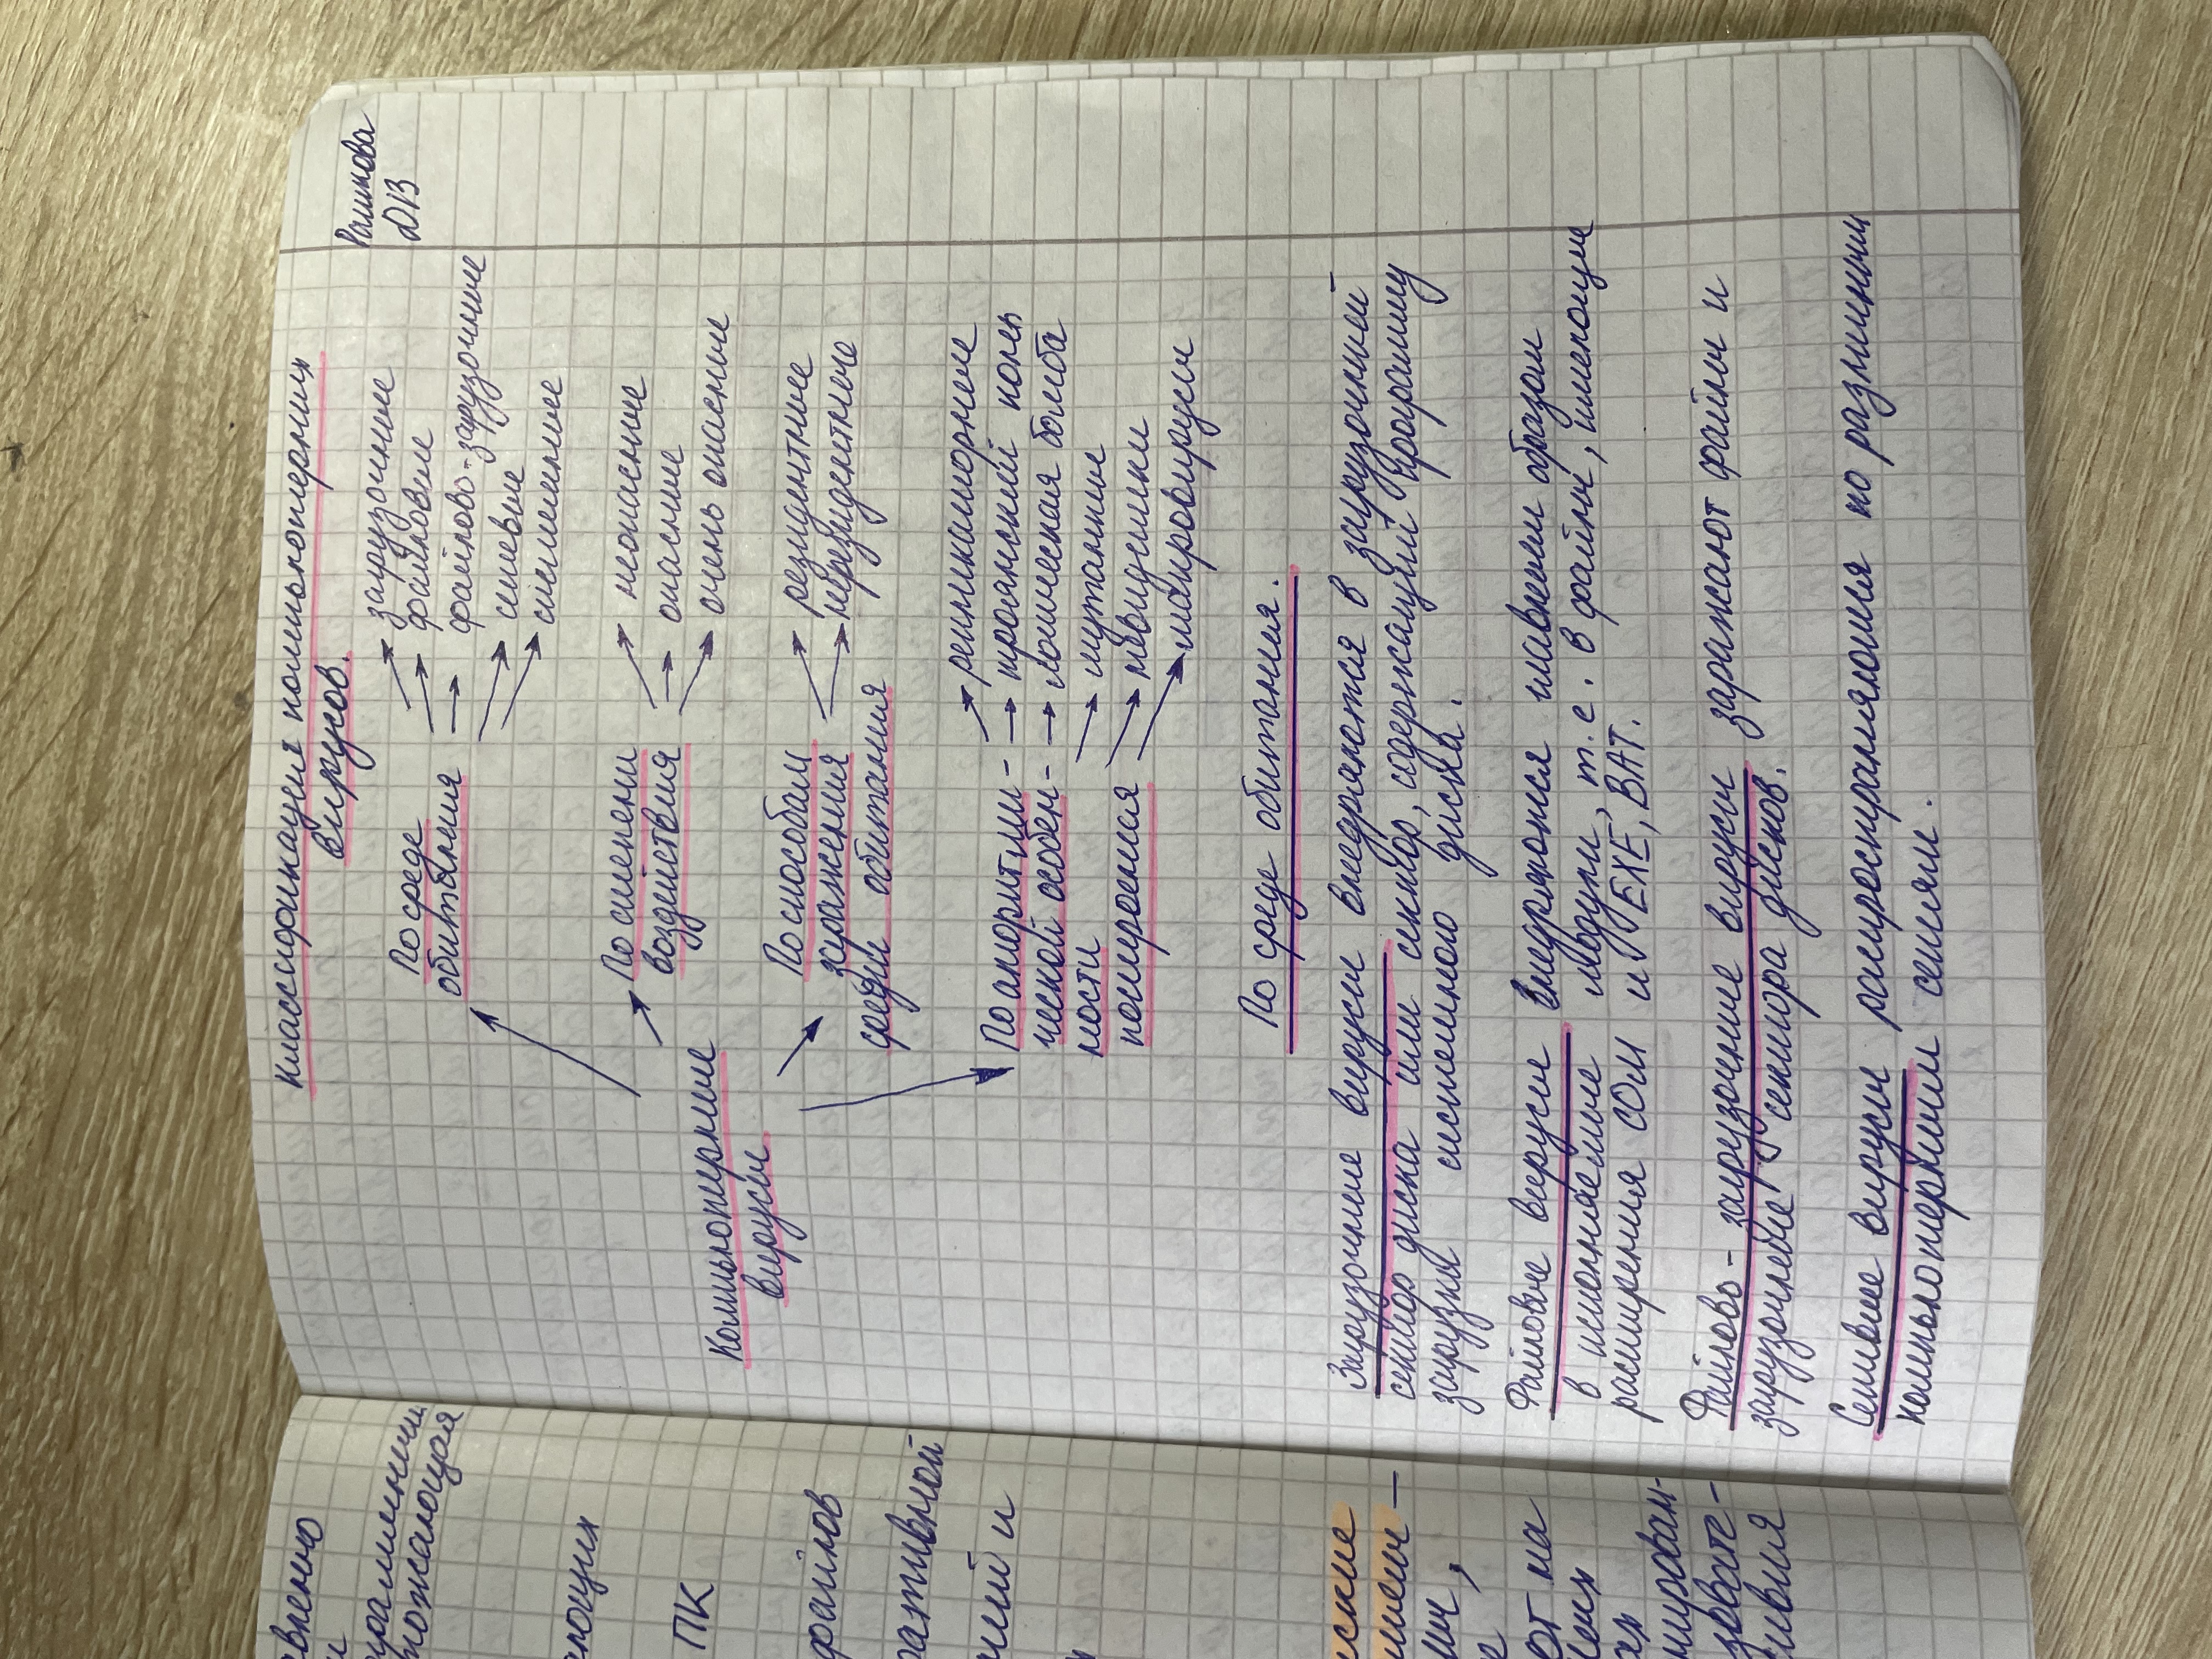 Рашикова
2ПВ
Классификация компьютерных
вирусов.
По среде
обитания
загрузочные
файловые
файлово-загрузочные
сетевые
системные
По степени
воздействия
неопасные
опасные
очень опасные
Компьютерные
вирусы
По способам
заражения
среды обитания
резидентные
нерезидентные
По алгоритми-
ческой особен-
ности
построения
репликаторные
троянский конь
логическая бомба
мутанты
невидимки
макровирусы
По среде обитания.
Загрузочные вирусы внедряются в загрузочный
сектор диска или сектор, содержащий программу
загрузки системного диска.
Файловые вирусы внедряются главным образом
в исполняемые модули, т.е. в файлы, имеющие
расширения COM и EXE, BAT.
Файлово-загрузочные вирусы заражают файлы и
загрузочные сектора дисков.
Сетевые вирусы распространяются по различным
компьютерным сетям.
ПК
файлов